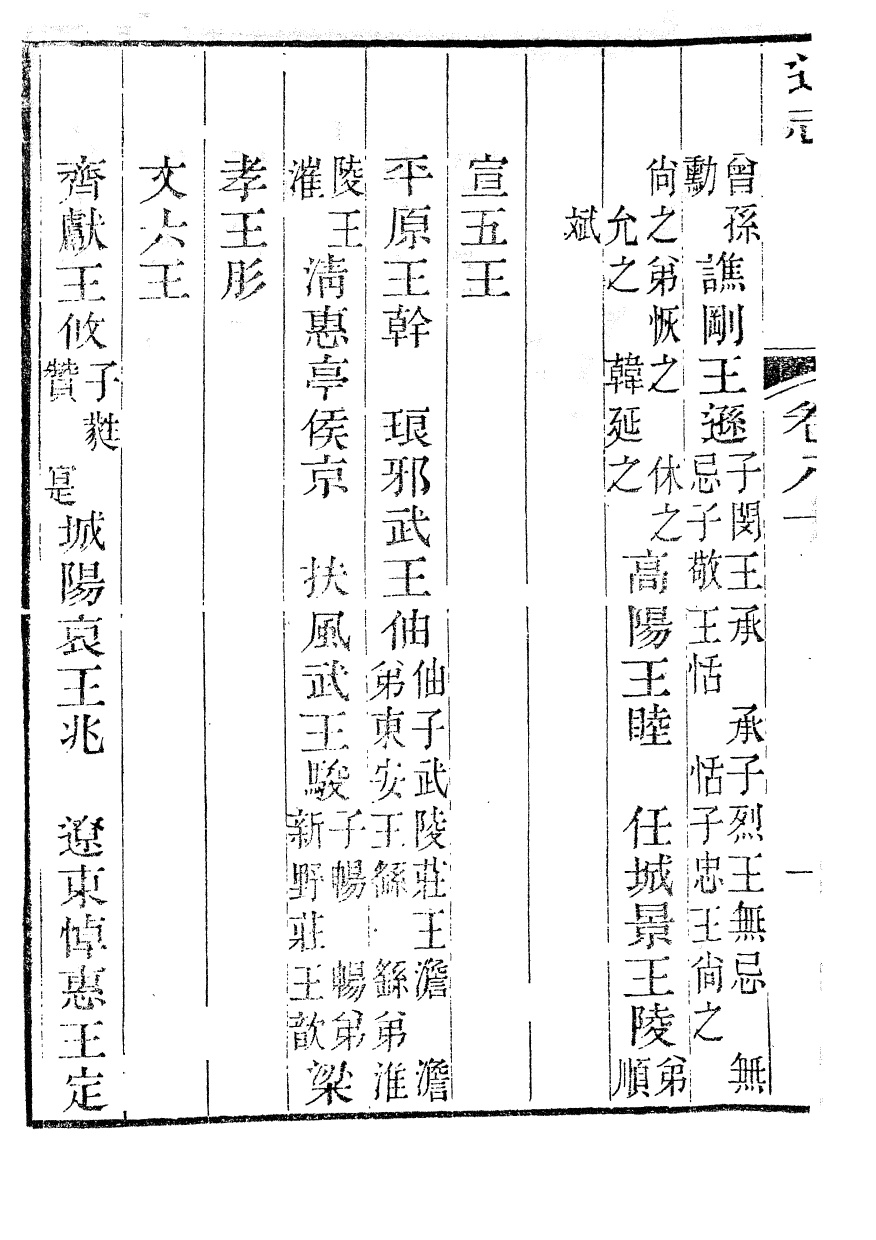 曾孫
勳
譙剛王遜
子閔王承 承子烈王無忌 無
忌子敬王恬 恬子忠王尚之
尚之弟恢之 休之
允之 韓延之
高陽王睦 任城景王陵
弟
順
斌
宣五王
平原王幹 琅邪武王伷
伷子武陵莊王澹 澹
弟東安王繇 繇弟淮
陵王
漼
清惠亭侯京 扶風武王駿
子暢 暢弟
新野莊王歆
梁
孝王肜
文六王
齊獻王攸
子蕤
贊 寔
城陽哀王兆 遼東悼惠王定